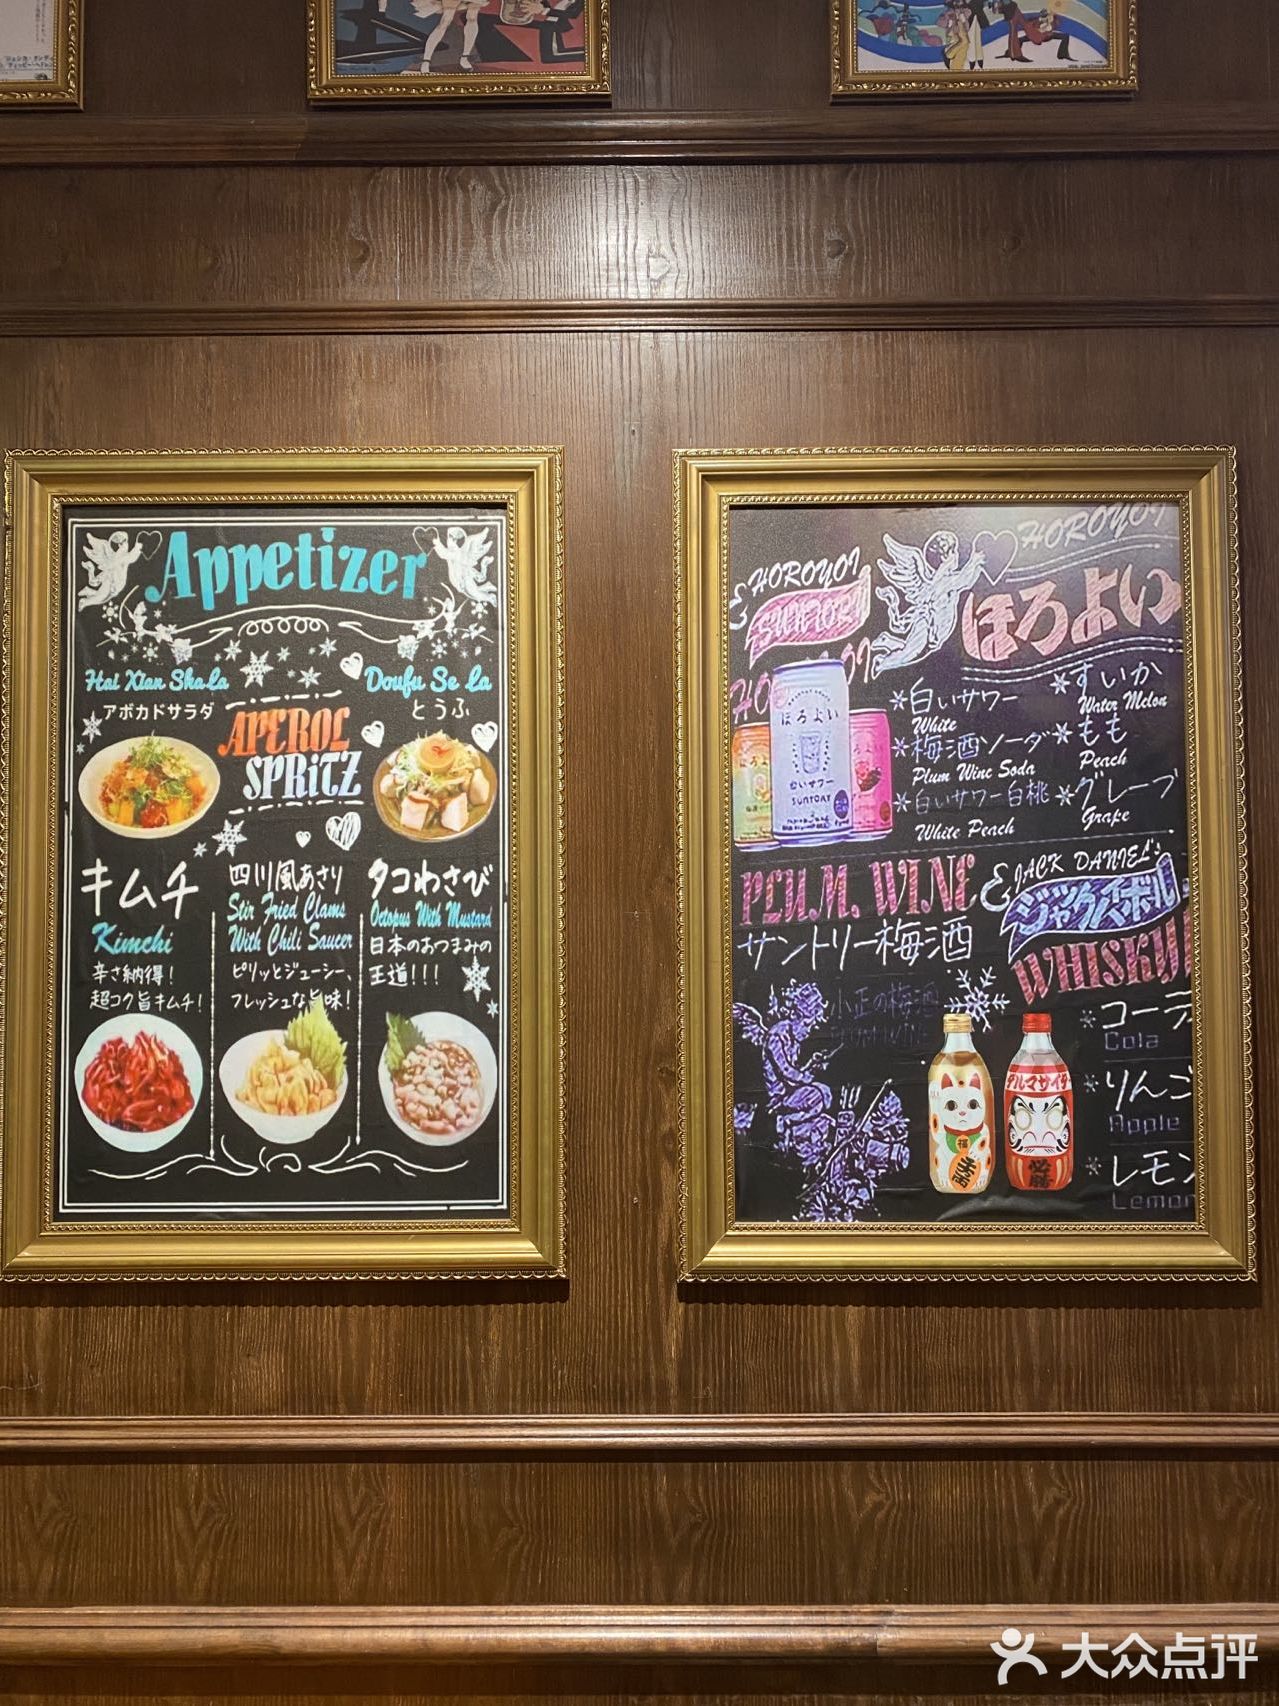 Appetizer
Hai Xian ShaLa
アボカドサラダ
Doufu Se La
とうふ
APEROL
SPRiTZ
キムチ
Kimchi
辛さ納得!
超コク旨キムチ!
四川風あさり
Stir Fried Clams
With Chili Saucer
ピリッとジューシー、
フレッシュな旨味!
タコわさび
Octopus With Mustard
日本のおつまみの
王道!!!
HOROYOI
& HOROYOI
SUNTORY
ほろよい
ほろよい
白いサワー
SUNTORY
*白いサワー
White
*梅酒ソーダ
Plum Wine Soda
*白いサワー白桃
White Peach
*すいか
Water Melon
*もも
Peach
*グレープ
Grape
PLUM. WINE
サントリー梅酒
小正の梅酒
& JACK DANIEL'S
ジャックハイボール
WHISKY
*コーラ
Cola
*りんご
Apple
*レモン
Lemon
福
ダルマサイダー
必勝
大众点评